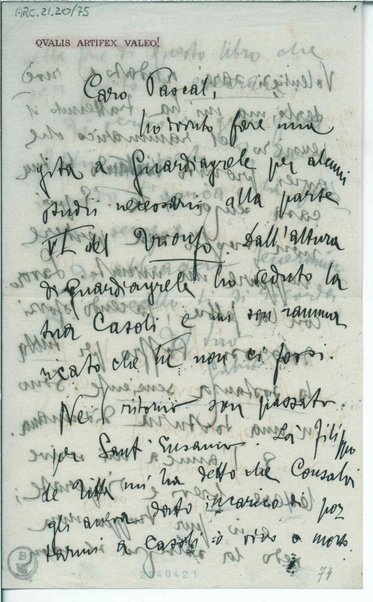 ARC.21.20/75
QVALIS ARTIFEX VALEO!
Caro Pascal,
ho dovuto fare una
gita a Guardiagrele per alcuni
studii necessarii alla parte
VI del Trionfo. Dall'altura
di Guardiagrele ho veduto la
tua Casoli e mi son ramma
ricato che tu non ci fossi.
Nel ritorno son passato
per Sant'Eusanio. La Filippo
de Titta mi ha detto che Consalvi
gli aveva dato incarico di por
tarmi a Casoli o vivo o morto.
2040421
74